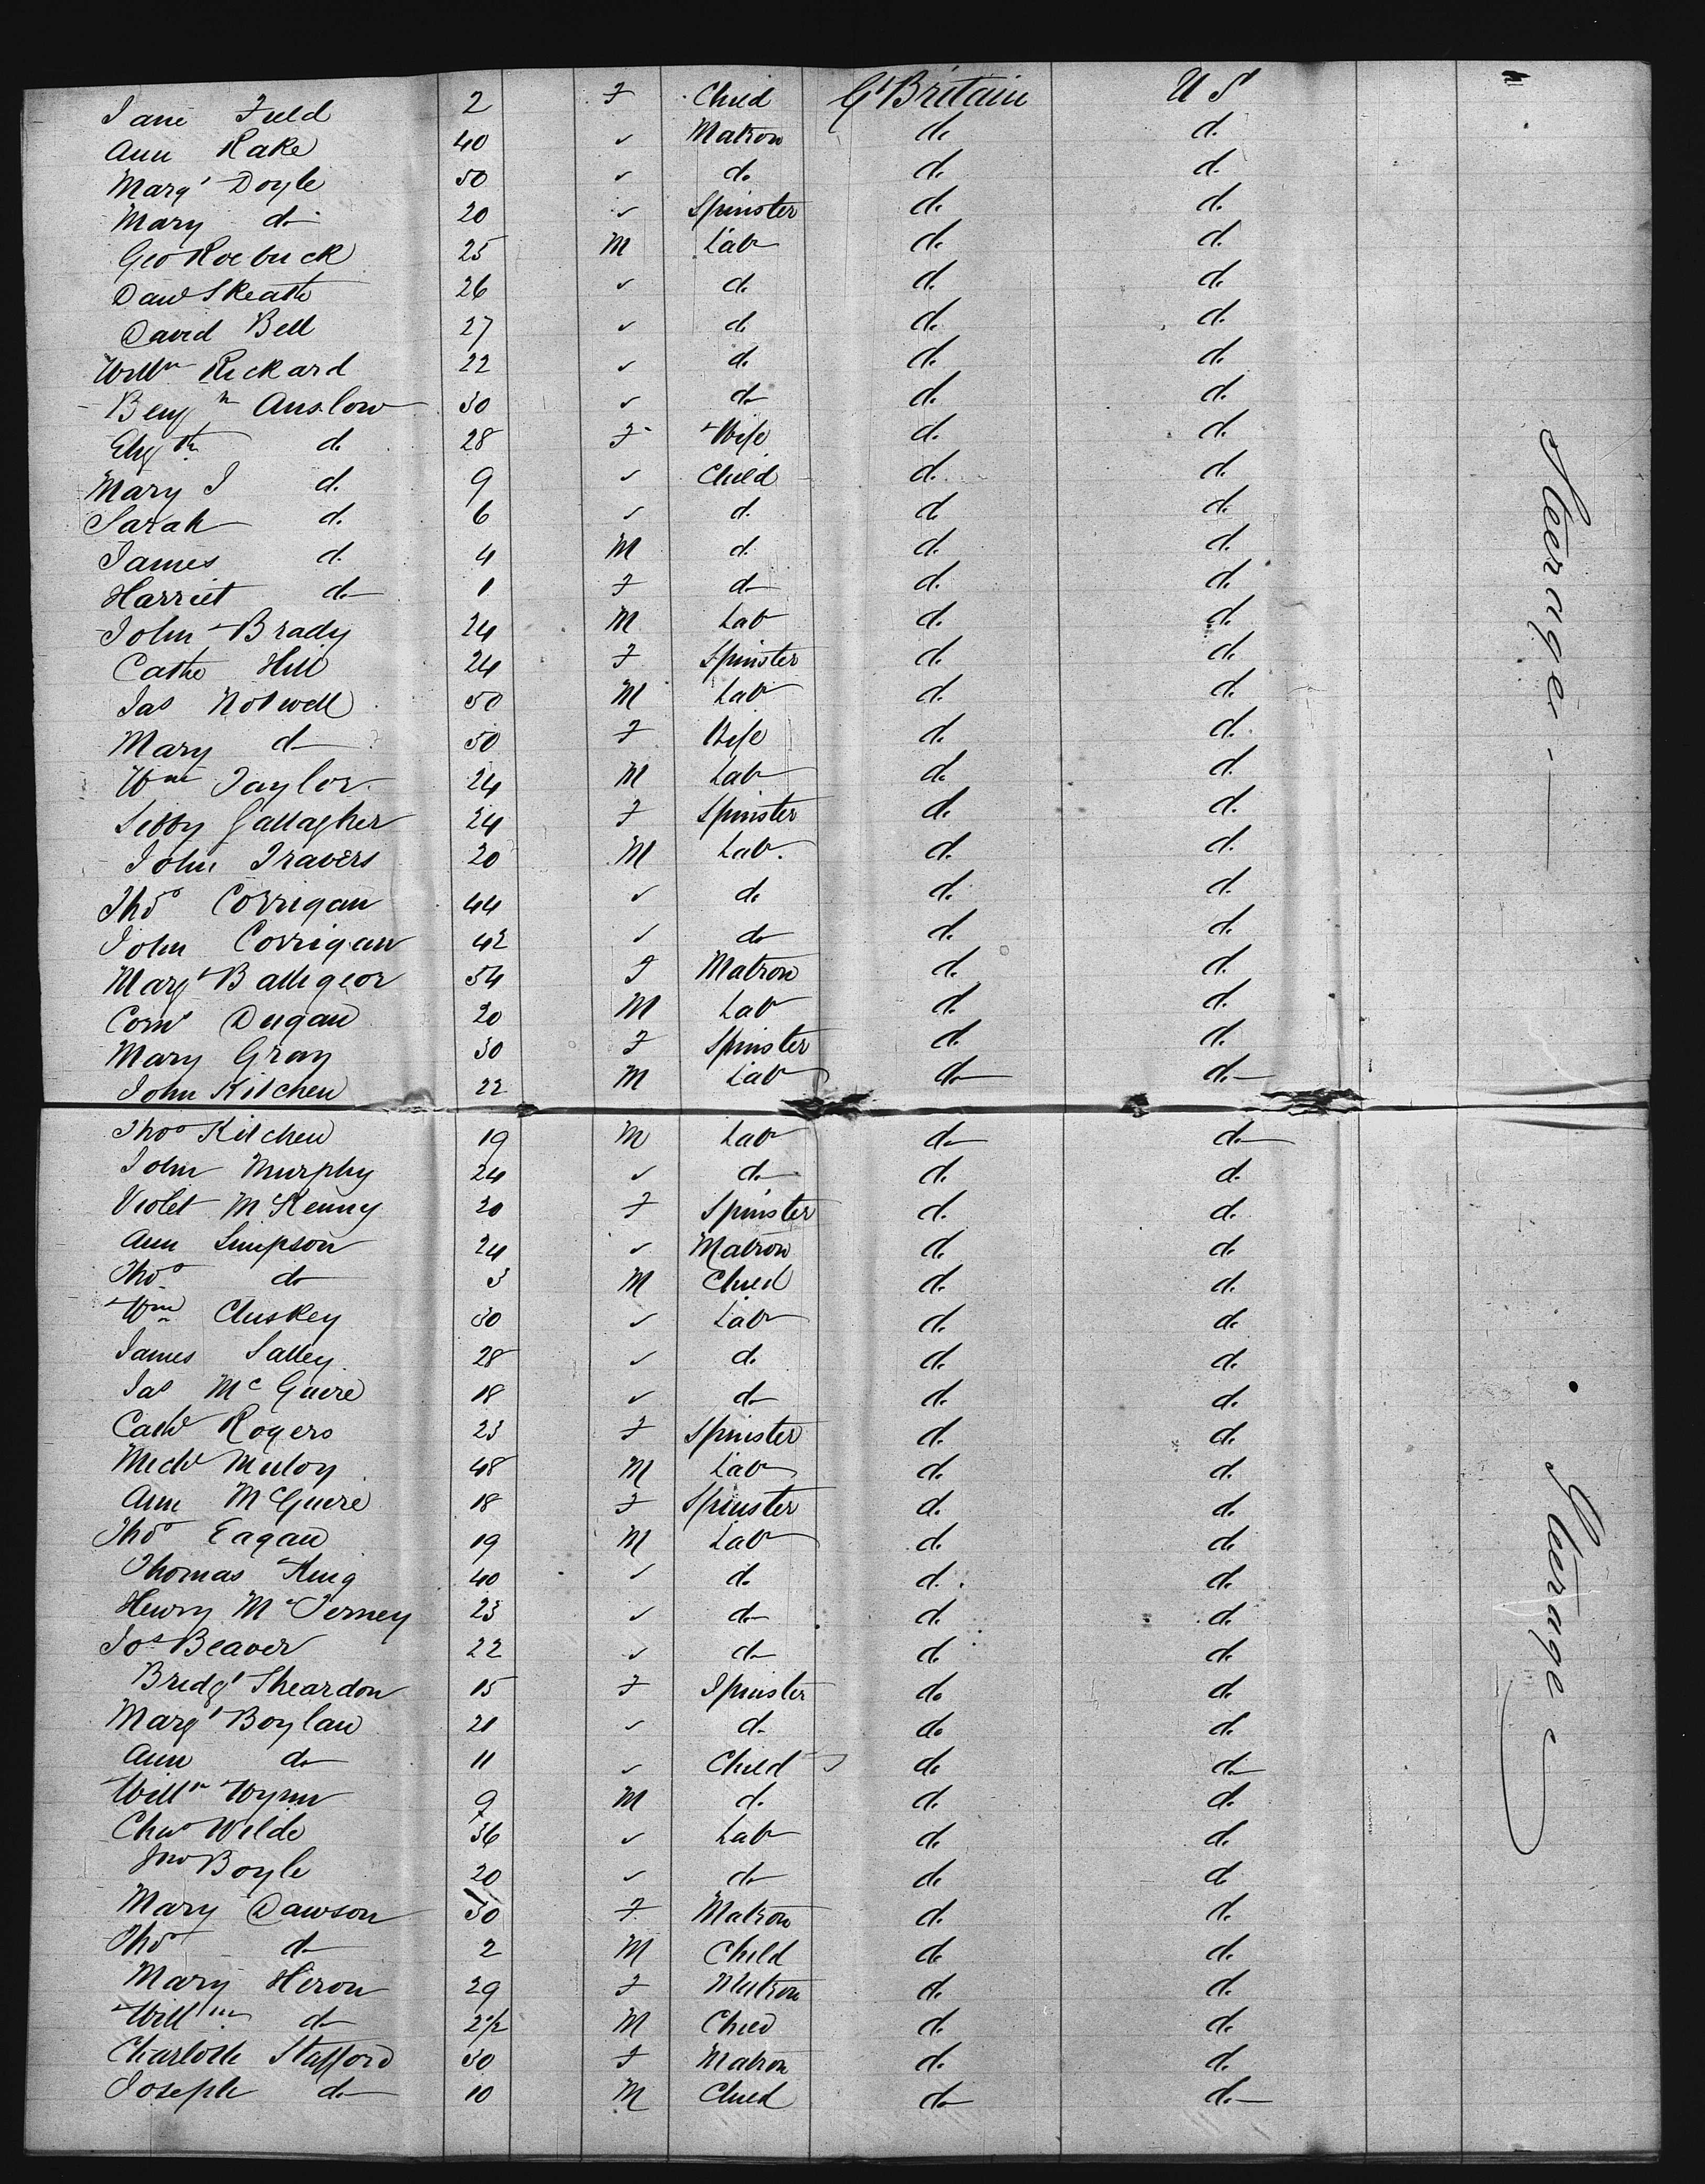 Jane Field 2 F Child Gt Britain U S
Ann Rake 40 ✓ Matron do do
Margt Doyle 50 ✓ do do do
Mary do 20 ✓ Spinster do do
Geo Roebuck 25 M Lab do do
Davd Skeath 26 ✓ do do do
David Bell 27 ✓ do do do
Willm Rickard 22 ✓ do do do
Benjn Anslow 30 ✓ do do do
Elizth do 28 F Wife do do
Mary J do 9 ✓ Child do do
Sarah do 6 ✓ do do do
James do 4 M do do do
Harriet do 1 F do do do
John Brady 24 M Lab do do
Cathe Hill 24 F Spinster do do
Jas Notwell 50 M Lab do do
Mary do 50 F Wife do do
Wm Taylor 24 M Lab do do
Sibby Gallagher 24 F Spinster do do
John Travers 20 M Lab. do do
Thos Corrigan 44 ✓ do do do
John Corrigan 42 ✓ do do do
Margt 54 F Matron do do
Corns Dugan 20 M Lab do do
Mary Gray 30 F Spinster do do
John Kitchen 22 M Lab do do
Thos Kitchen 19 M Lab do do
John Murphy 24 ✓ do do do
Violet McKenny 20 F Spinster do do
Ann Simpson 24 ✓ Matron do do
Thos do 3 M Child do do
Wm Cluskey 30 ✓ Lab do do
James Salley 28 ✓ do do do
Jas McGuire 18 ✓ do do do
Cathe Rogers 23 F Spinster do do
Michl Muloy 48 M Lab do do
Ann McGuire 18 F Spinster do do
Thos Eagan 19 M Lab do do
Thomas King 40 ✓ do do do
Henry McTerney 23 ✓ do do do
Jos Beaver 22 ✓ do do do
Bridgt Sheardon 15 F Spinster do do
Margt Boylan 21 ✓ do do do
Ann do 11 ✓ Child do do
Willm Wynn 9 M do do do
Chas Wilde 36 ✓ Lab do do
Jno Boyle 20 ✓ do do do
Mary Dawson 30 F Matron do do
Thos do 2 M Child do do
Mary Heron 29 F Matron do do
Willm do 2½ M Child do do
Charlotte Stafford 30 F Matron do do
Joseph do 10 M Child do do
Steerage
Steerage